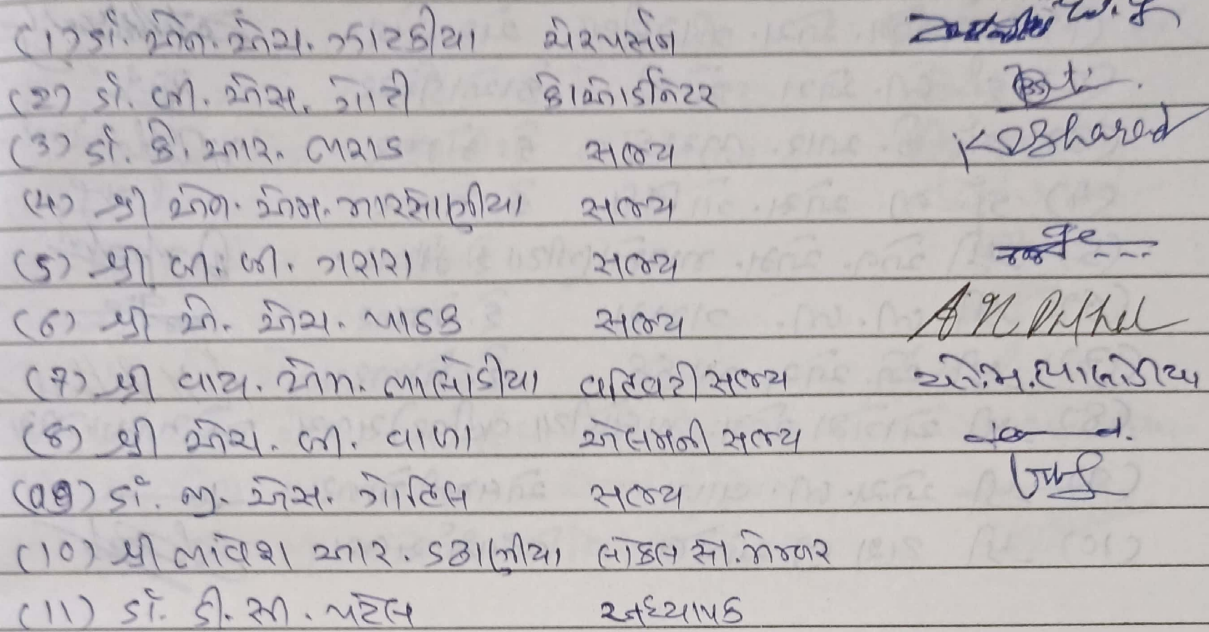 (1) ડૉ. એન. એચ. ઝાટકીયા ચેરપર્સન
(2) ડૉ. બી. એસ. ગોટી કોઓર્ડીનેટર
(3) ડૉ. કે. આર. ભરાડ સભ્ય K D Bharad
(4) શ્રી એન. એમ. મારસોણીયા સભ્ય
(5) શ્રી બી. બી. ગરારા સભ્ય
(6) શ્રી એ. એચ. પાઠક સભ્ય
(7) શ્રી વાય. એન. ભાલોડીયા વહિવટી સભ્ય
(8) શ્રી એચ. બી. વાળા એલમની સભ્ય
(09) ડૉ. જી. એસ. ગોહિલ સભ્ય
(10) શ્રી ભાવેશ આર. ઠઠાણીયા લોકલ સો. મેમ્બર
(11) ડૉ. ડી. સી. પટેલ અધ્યાપક